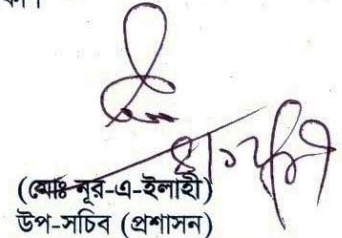 (মোঃ নূর-এ-ইলাহী)
উপ-সচিব (প্রশাসন)